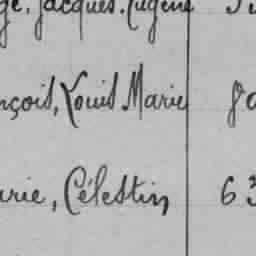 ge, Jacques, Eugène
nçois, Louis Marie 80
arie, Célestin 63